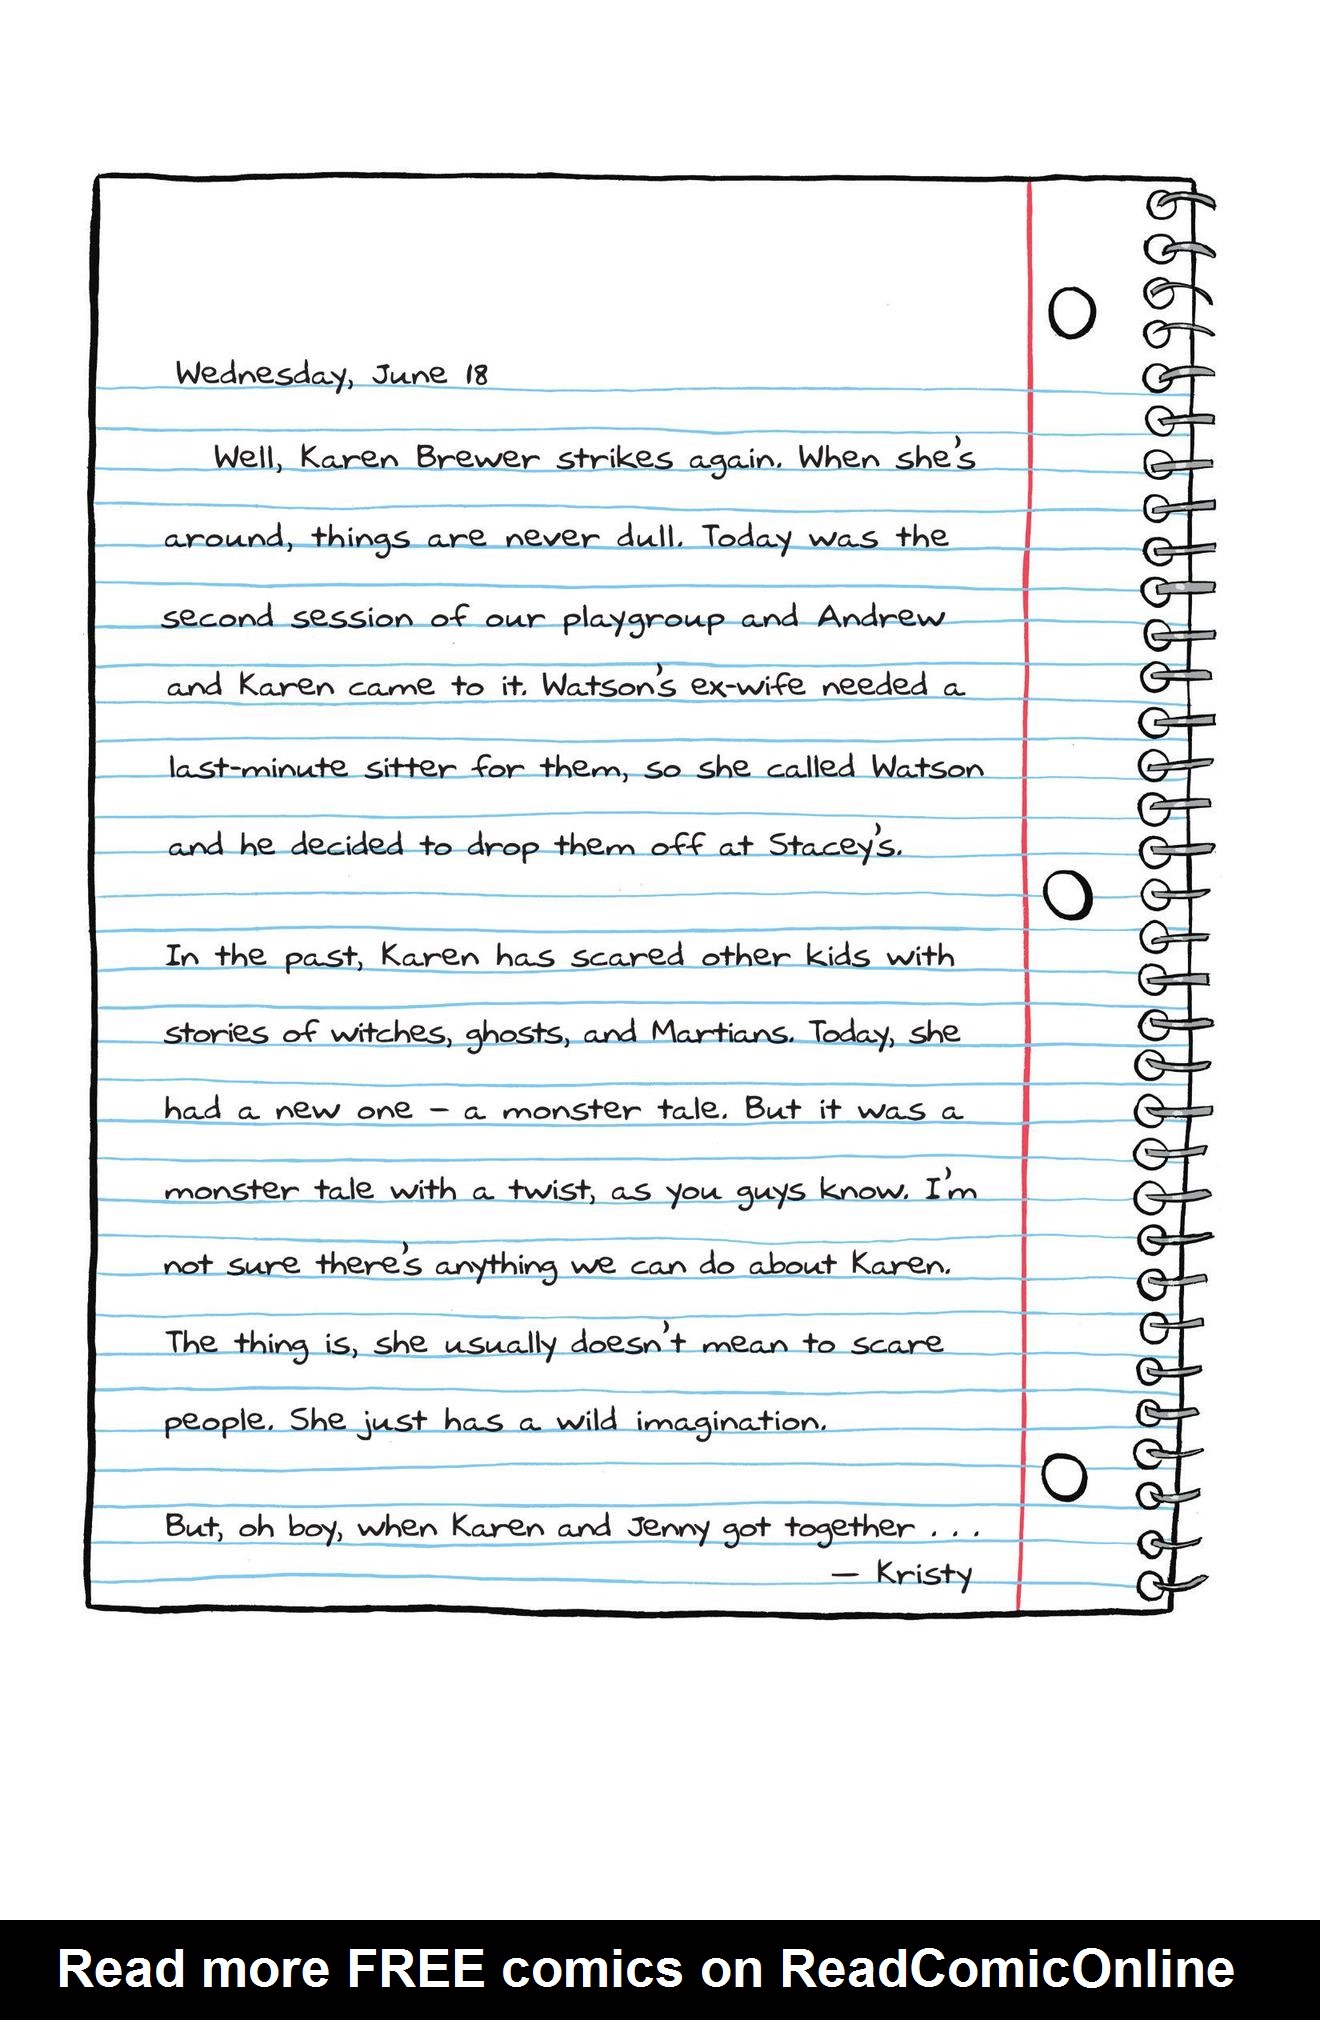 Wednesday, June 18
Well, Karen Brewer strikes again. When she's
around, things are never dull. Today was the
second session of our playgroup and Andrew
and Karen came to it. Watson's ex-wife needed a
last-minute sitter for them, so she called Watson
and he decided to drop them off at Stacey's.
In the past, Karen has scared other kids with
stories of witches, ghosts, and Martians. Today, she
had a new one – a monster tale. But it was a
monster tale with a twist, as you guys know. I'm
not sure there's anything we can do about Karen.
The thing is, she usually doesn't mean to scare
people. She just has a wild imagination.
But, oh boy, when Karen and Jenny got together . . .
— Kristy
Read more FREE comics on ReadComicOnline